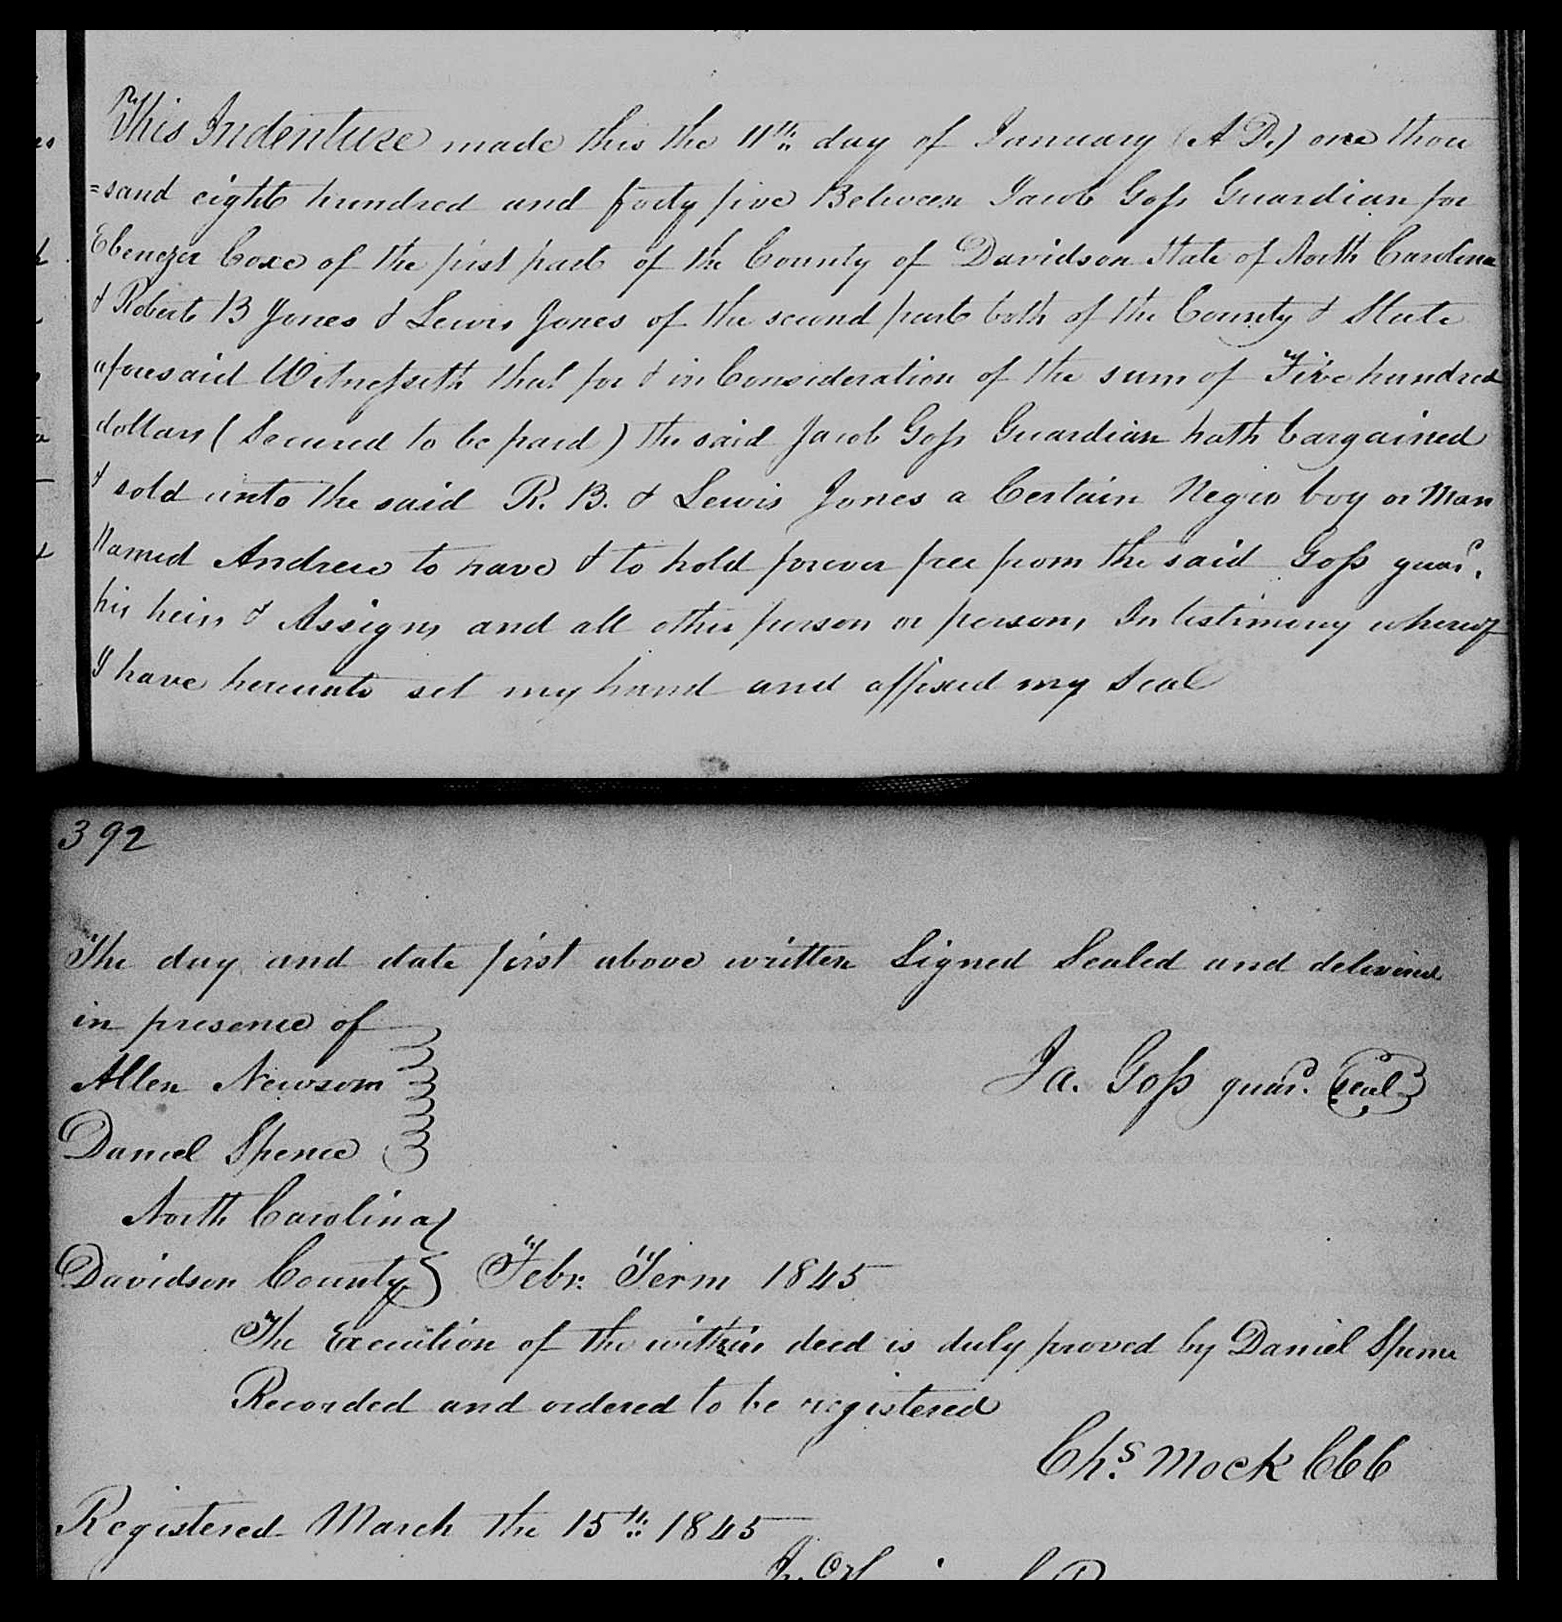 This Indenture made this the 11th day of January (A D.) one thou
=sand eight hundred and forty five Between Jacob Goss Guardian for
Ebenezer Coxe of the first part of the County of Davidson State of North Carolina
& Robert B Jones & Lewis Jones of the second part both of the County & State
aforesaid Witnesseth that for & in Consideration of the sum of Five hundred
dollars (Secured to be paid) the said Jacob Goss Guardian hath bargained
& sold unto the said R. B. & Lewis Jones a Certain Negro boy or Man
Named Andrew to have & to hold forever free from the said Goss guar.d
his heirs & Assigns and all other person or persons In testimony whereof
I have hereunto set my hand and affixed my Seal
392
The day and date first above written Signed Sealed and delivered
in presence of
Allen Newsom
Ja. Goss guar.d seal
Daniel Spence
North Carolina
Davidson County Febr. Term 1845
The Execution of the within deed is duly proved by Daniel Spence
Recorded and ordered to be registered
Ch.s Mock CCC
Registered March the 15th 1845